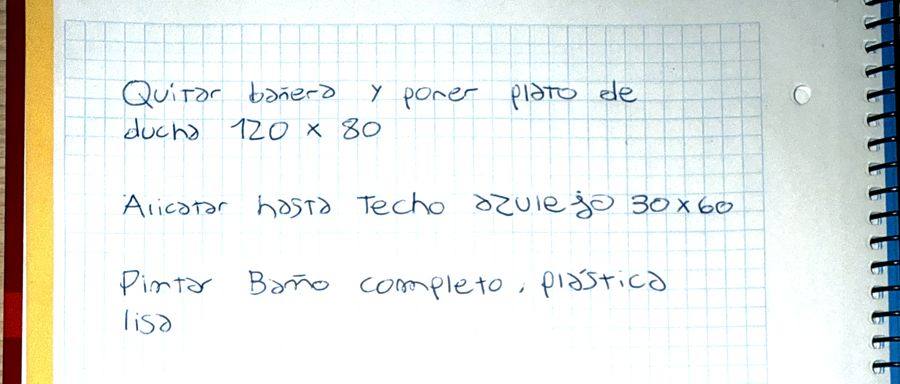 Quitar bañera y poner plato de
ducha 120 x 80
Alicatar hasta Techo azulejo 30x60
Pintar Baño completo, plástica
lisa